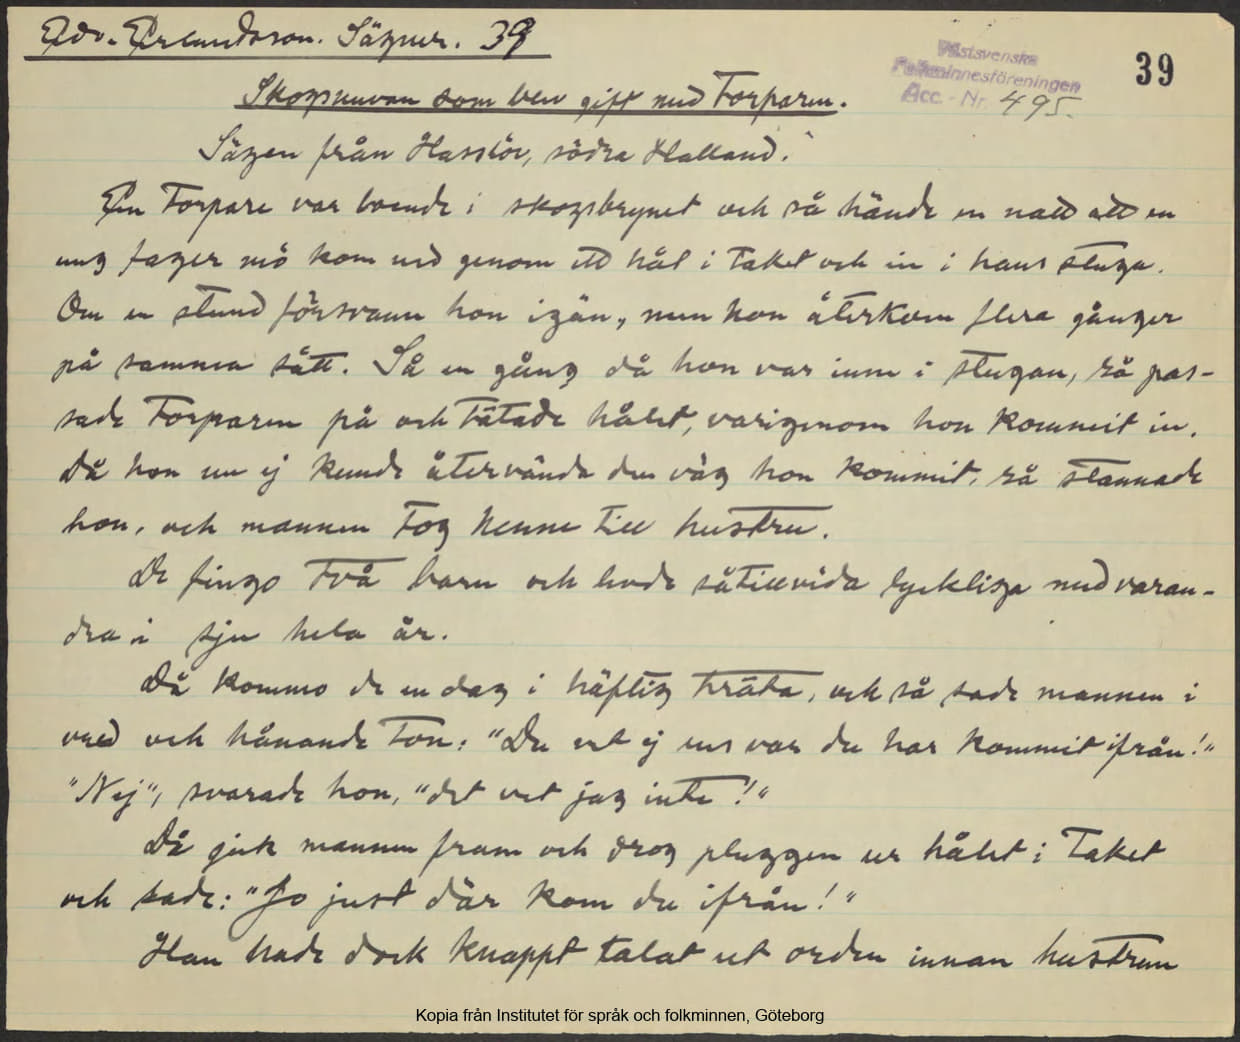 Edv. Erlandsson. Sägner. 39
Västsvenska
Folkminnesföreningen
Acc. - Nr. 495.
39
Skogsnuvan som blev gift med Torparen.
Sägen från Hasslöv, södra Halland.
En Torpare var boende i skogsbrynet och så hände en natt att en
ung fager mö kom ned genom ett hål i taket och in i hans stuga.
Om en stund försvann hon igän, men hon återkom flera gånger
på samma sätt. Så en gång då hon var inne i stugan, så pas-
sade Torparen på och tätade hålet, varigenom hon kommit in.
Då hon nu ej kunde återvända den väg hon kommit, så stannade
hon, och mannen tog henne till hustru.
De fingo två barn och levde såtillvida lyckliga med varan-
dra i sju hela år.
Då kommo de en dag i häftig träta, och så sade mannen i
vred och hånande ton: "Du vet ej ens var du har kommit ifrån!"
"Nej", svarade hon, "det vet jag inte!"
Då gick mannen fram och drog pluggen ur hålet i taket
och sade: "Jo just där kom du ifrån!"
Han hade dock knappt talat ut orden innan hustrun
Kopia från Institutet för språk och folkminnen, Göteborg